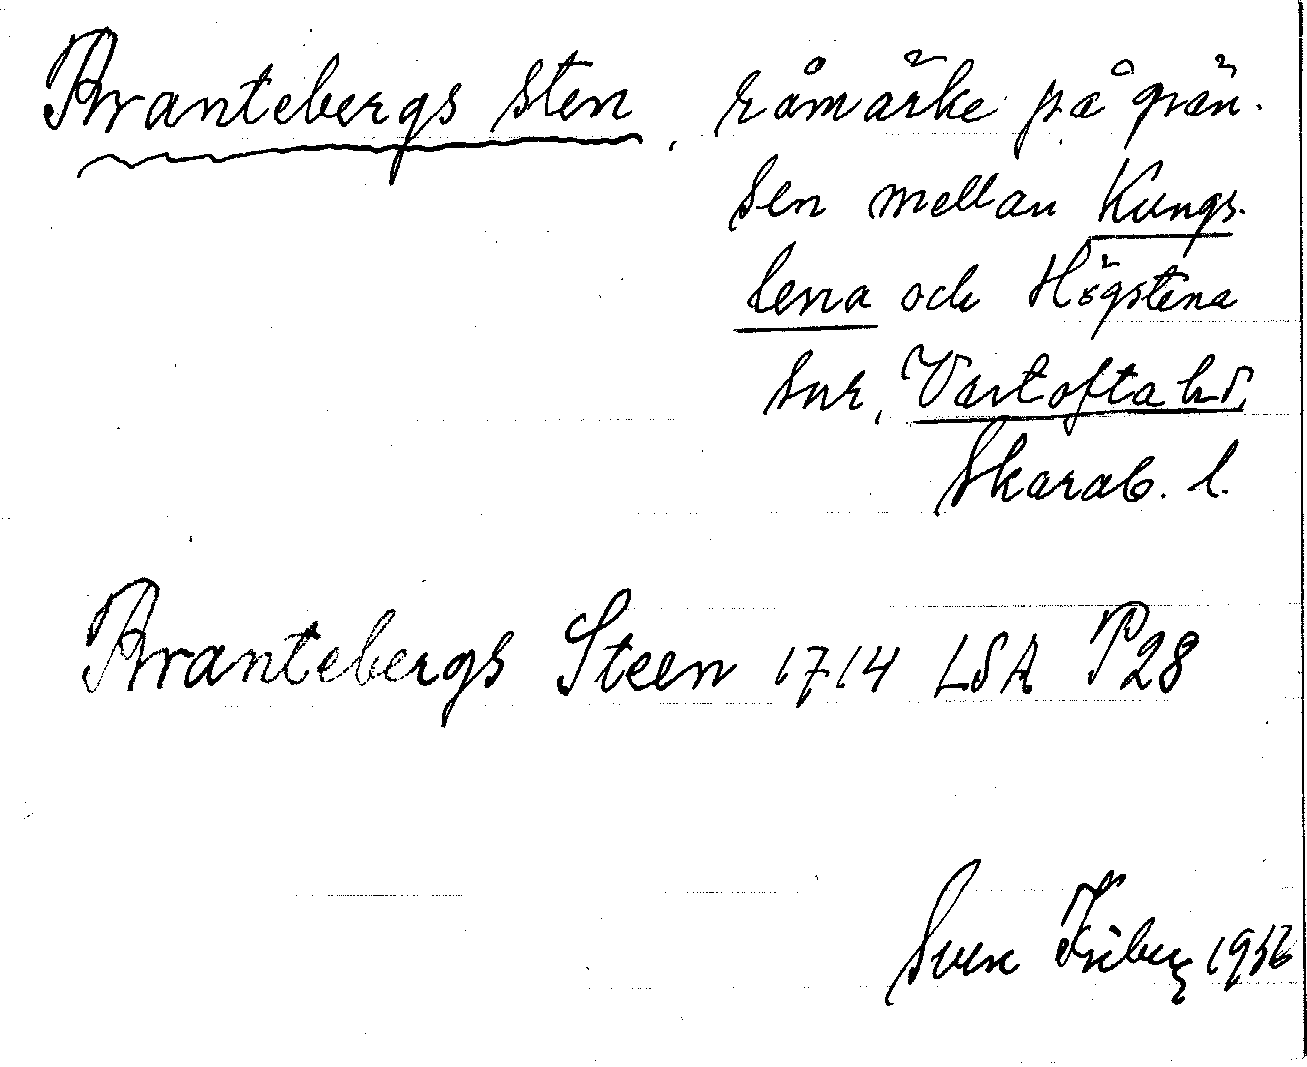 Brantebergs sten, råmärke på grän-
sen mellan Kungs-
lena och Högstena
snr, Vartofta hd,
Skarab. l.
Brantebergs Steen 1714 LSA P28
Sven Friberg 1956